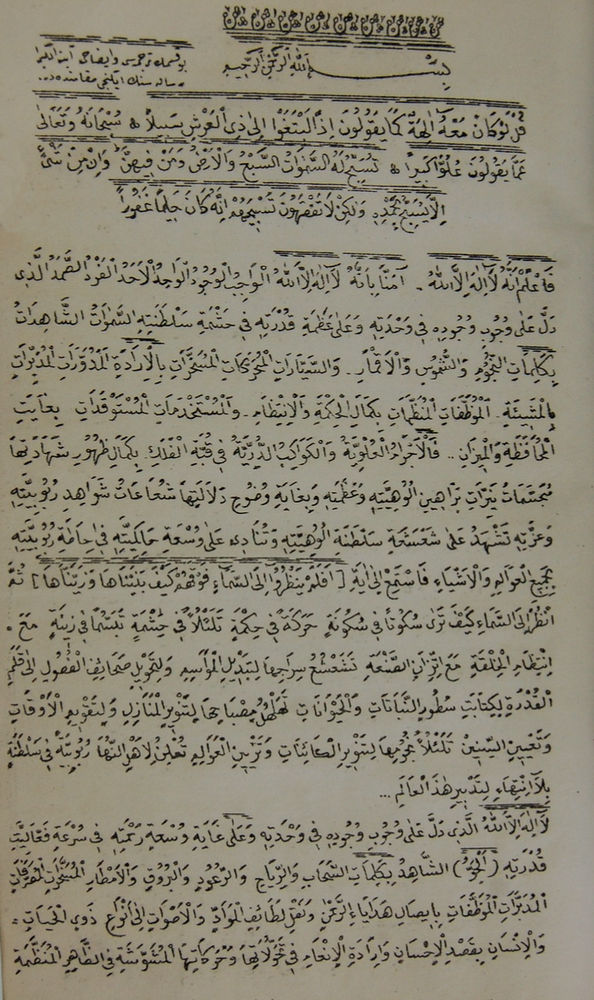 بوقسمك ترجمه‌سى وايضاحى آية الكبرا
رساله سنك ايكنجى مقامنده در..
بِسْمِ اللّٰهِ الرَّحْمٰنِ الرَّحِيمِ
قُلْ لَوْ كَانَ مَعَهُ اٰلِهَةٌ كَمَا يَقُولُونَ اِذًا لَابْتَغَوْا اِلٰى ذِي الْعَرْشِ سَبِيلًا * سُبْحَانَهُ وَتَعَالٰى
عَمَّا يَقُولُونَ عُلُوًّا كَبِيرًا * تُسَبِّحُ لَهُ السَّمٰوَاتُ السَّبْعُ وَالْاَرْضُ وَمَنْ فِيهِنَّ وَاِنْ مِنْ شَيْءٍ
اِلَّا يُسَبِّحُ بِحَمْدِهِ وَلٰكِنْ لَا تَفْقَهُونَ تَسْبِيحَهُمْ اِنَّهُ كَانَ حَلِيمًا غَفُورًا
فَاعْلَمْ اَنَّهُ لَا اِلٰهَ اِلَّا اللّٰهُ . اٰمَنَّا بِاَنَّهُ لَا اِلٰهَ اِلَّا اللّٰهُ الْوَاجِبُ الْوُجُودِ الْوَاحِدُ الْاَحَدُ الْفَرْدُ الصَّمَدُ الَّذِي
دَلَّ عَلٰى وُجُوبِ وُجُودِهِ فِي وَحْدَتِهِ وَعَلٰى عَظَمَةِ قُدْرَتِهِ فِي حَشْمَةِ سَلْطَنَتِهِ السَّمٰوَاتُ الشَّاهِدَاتُ
بِكَلِمَاتِ النُّجُومِ وَالشُّمُوسِ وَالْاَقْمَارِ .. وَالسَّيَّارَاتِ الْمُحَرَّكَاتِ الْمُسَخَّرَاتِ بِالْاِرَادَةِ الْمُدَوَّرَاتِ الْمُدَبَّرَاتِ
بِالْمَشِيئَةِ . الْمُوَظَّفَاتِ الْمُنَظَّمَاتِ بِكَمَالِ الْحِكْمَةِ وَالْاِنْتِظَامِ . وَالْمُسْتَخْدَمَاتِ الْمُسْتَوْقَدَاتِ بِغَايَةِ
الْمُحَافَظَةِ وَالْمِيزَانِ .. فَالْاَجْرَامُ الْعُلْوِيَّةُ وَالْكَوَاكِبُ الدُّرِّيَّةُ فِي قُبَّةِ الْفَلَكِ بِكَمَالِ ظُهُورِ شَهَادَتِهَا
مُجَسَّمَاتُ نَيِّرَاتِ بَرَاهِينِ اُلُوهِيَّتِهِ وَعَظَمَتِهِ وَبِغَايَةِ وُضُوحِ دَلَالَتِهَا شُعَاعَاتُ شَوَاهِدِ رُبُوبِيَّتِهِ
وَعِزَّتِهِ تَشْهَدُ عَلٰى شَعْشَعَةِ سَلْطَنَةِ اُلُوهِيَّتِهِ وَتُنَادِي عَلٰى وُسْعَةِ حَاكِمِيَّتِهِ فِي اِحَاطَةِ رُبُوبِيَّتِهِ
بِجَمِيعِ الْعَوَالِمِ وَالْاَشْيَاءِ فَاسْتَمِعْ اِلٰى اٰيَةِ [ اَفَلَمْ يَنْظُرُوا اِلَى السَّمَاءِ فَوْقَهُمْ كَيْفَ بَنَيْنَاهَا وَزَيَّنَّاهَا ] ثُمَّ
انْظُرْ اِلَى السَّمَاءِ كَيْفَ تَرٰى سُكُوتًا فِي سُكُونَةٍ حَرَكَةً فِي حِكْمَةٍ تَلَئْلُأً فِي حِشْمَةٍ تَبَسُّمًا فِي زِينَةٍ مَعَ .
اِنْتِظَامِ الْخِلْقَةِ مَعَ اِتِّزَانِ الصَّنْعَةِ تَشَعْشُعُ سِرَاجِهَا لِتَبْدِيلِ الْمَوَاسِمِ وَلِتَحْوِيلِ صَحَائِفِ الْفُصُولِ اِلٰى قَلَمِ
الْقُدْرَةِ لِكِتَابَةِ سُطُورِ النَّبَاتَاتِ وَالْحَيْوَانَاتِ تَهَلْهُلُ مِصْبَاحِهَا لِتَنْوِيرِ الْمَنَازِلِ وَلِتَقْوِيمِ الْاَوْقَاتِ
وَتَعْيِينِ السِّنِينَ تَلَئْلُأُ نُجُومِهَا لِتَنْوِيرِ الْكَائِنَاتِ وَتَزْيِينِ الْعَوَالِمِ تُعْلِنُ لِاَهْلِ النُّهٰى رُبُوبِيَّةً فِي سَلْطَنَةٍ
بِلَا اِنْتِهَاءٍ لِتَدْبِيرِ هٰذَا الْعَالَمِ ...
لَا اِلٰهَ اِلَّا اللّٰهُ الَّذِي دَلَّ عَلٰى وُجُوبِ وُجُودِهِ فِي وَحْدَتِهِ وَعَلٰى غَايَةِ وُسْعَةِ رَحْمَتِهِ فِي سُرْعَةِ فَعَّالِيَّةِ
قُدْرَتِهِ ( اَلْجَوُّ ) الشَّاهِدُ بِكَلِمَاتِ السَّحَابِ وَالرِّيَاحِ وَالرُّعُودِ وَالْبُرُوقِ وَالْاَمْطَارِ الْمُسَخَّرَاتِ الْمُصَرَّفَاتِ
الْمُدَبَّرَاتِ الْمُوَظَّفَاتِ بِاِيصَالِ هَدَايَاءِ الرَّحْمٰنِ وَنَقْلِ لَطَائِفِ الْمَوَادِّ وَالْاَصْوَاتِ اِلٰى اَنْوَاعِ ذَوِي الْحَيَاتِ .
وَالْاِنْسَانِ بِقَصْدِ الْاِحْسَانِ وَاِرَادَةِ الْاِنْعَامِ فِي تَحَوُّلَاتِهَا وَحَرَكَاتِهَا الْمُشَوَّشَةِ فِي الظَّاهِرِ الْمُنَظَّمَةِ